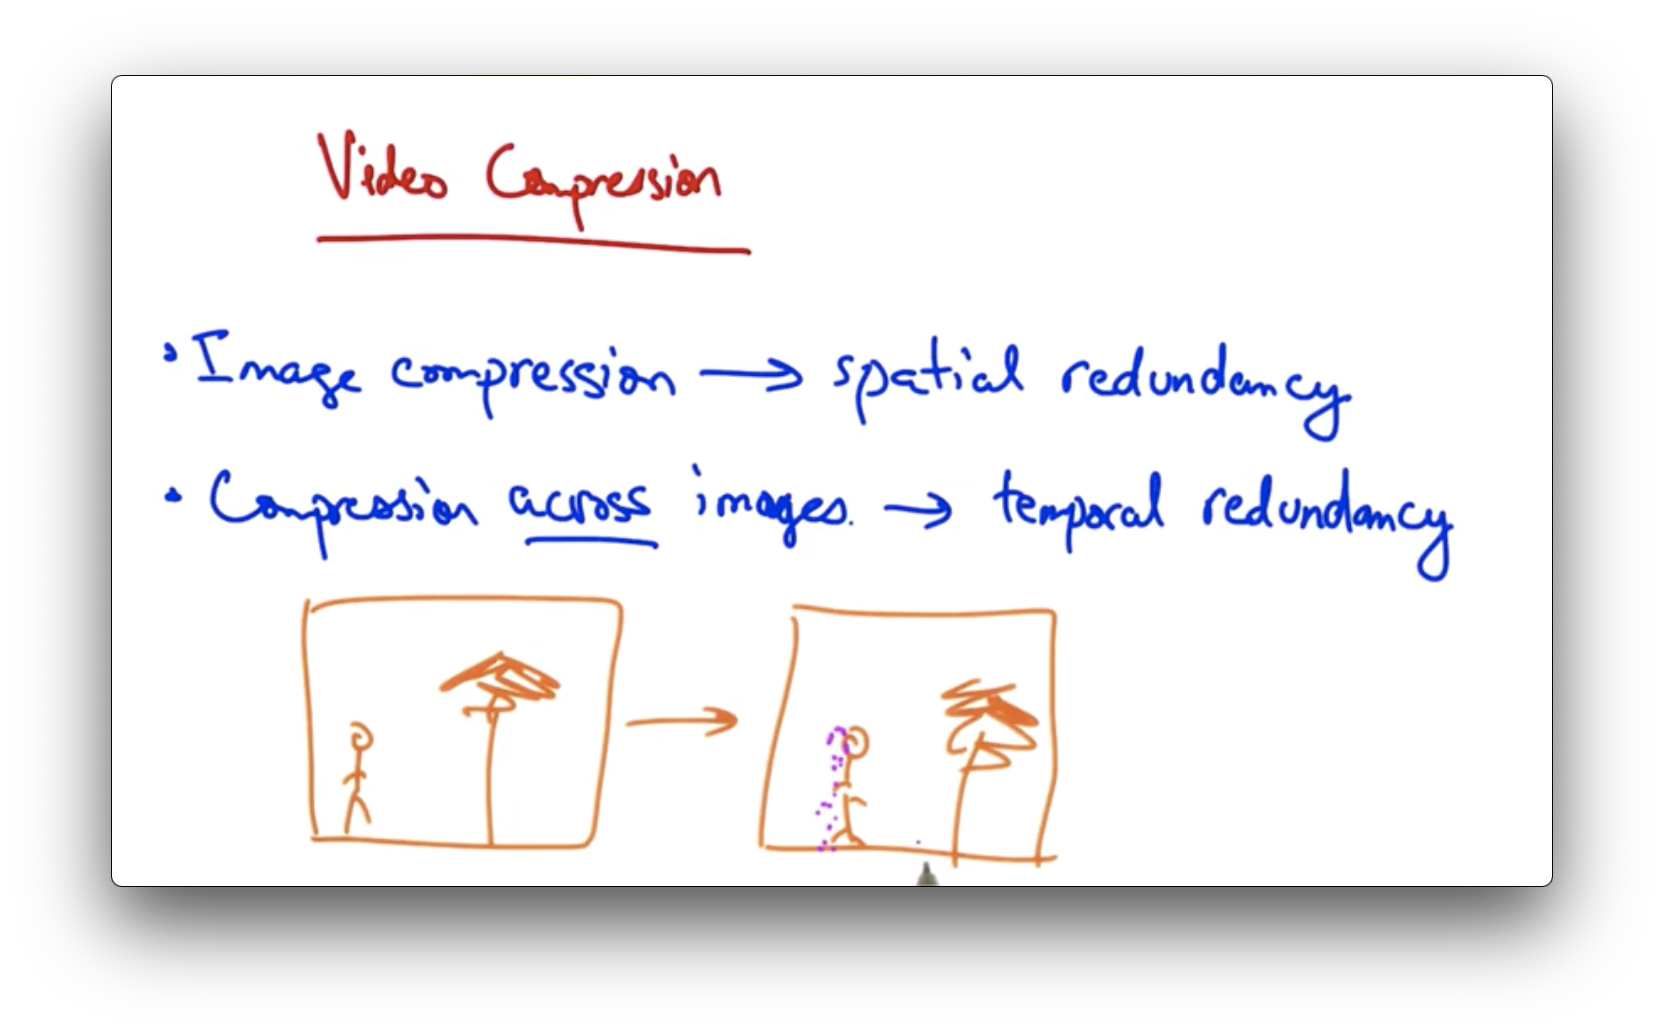 Video Compression
• Image compression → spatial redundancy
• Compression across images. → temporal redundancy